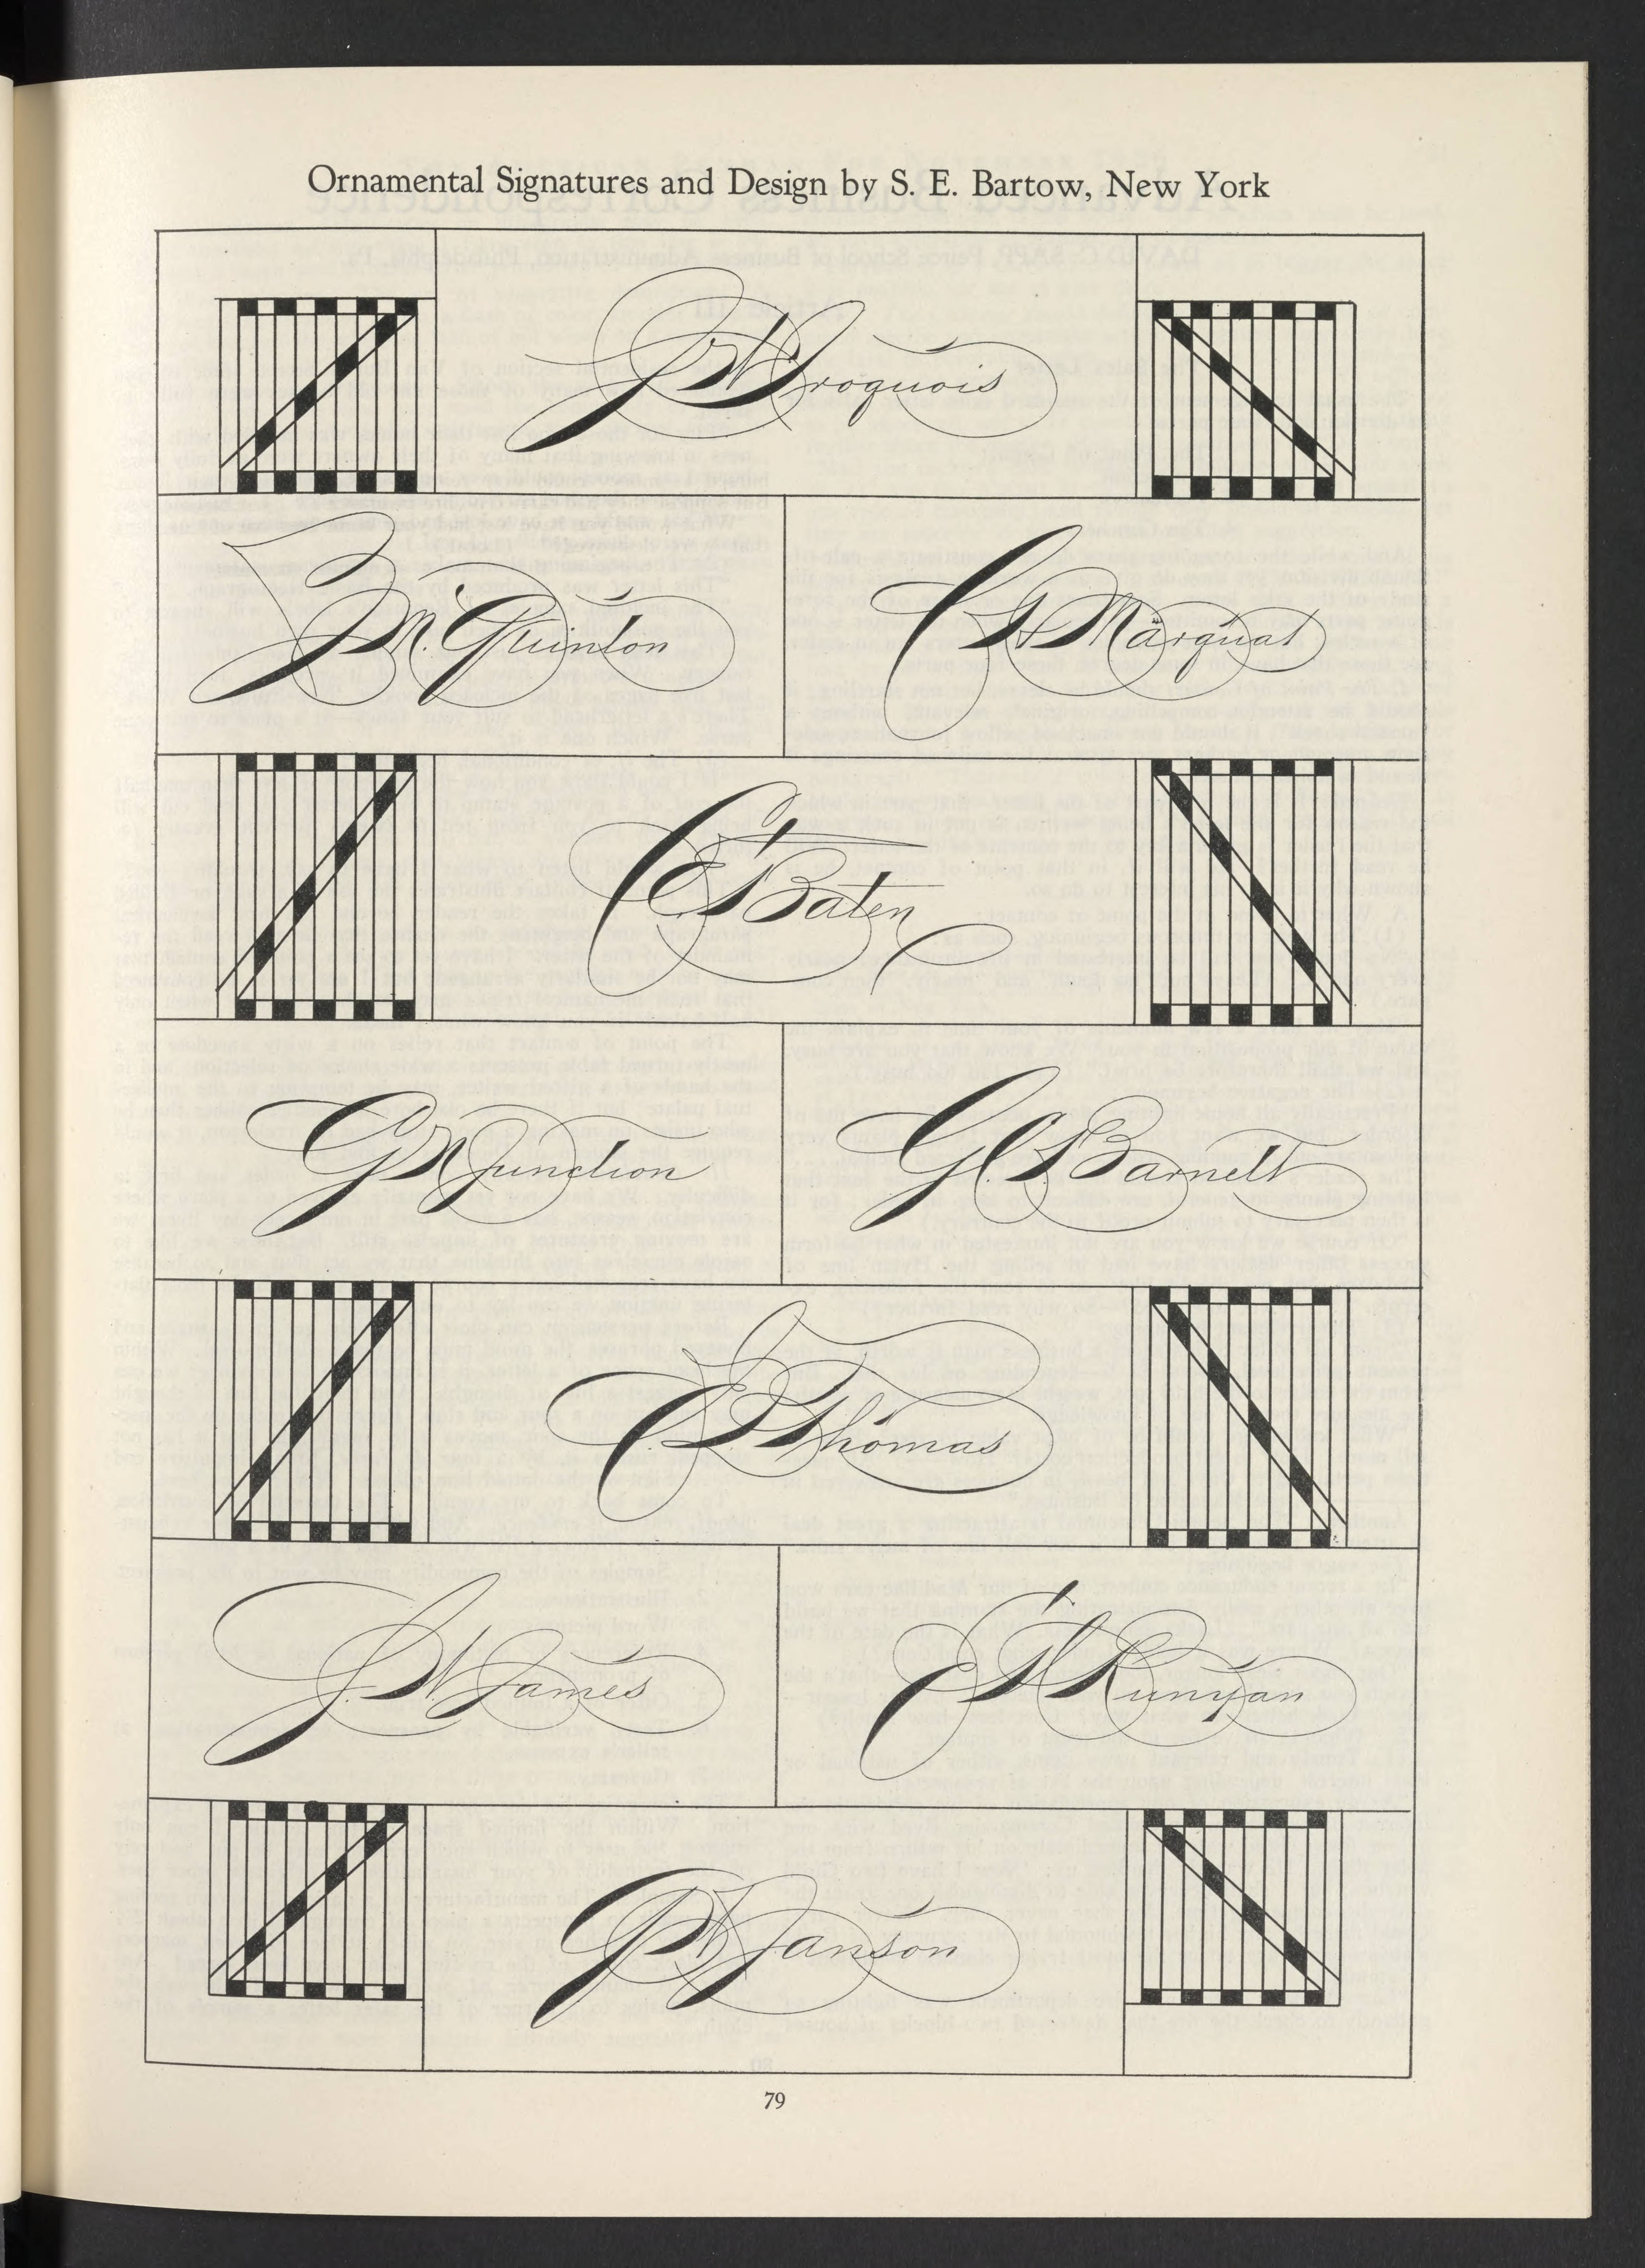 Ornamental Signatures and Design by S. E. Bartow, New York
J W Iroquois
Z M. Quinton
C G Marquat
C E Baten
G N Junction
G C Barnett
C L Thomas
J. W. James
E H Runyan
G W Janson
79